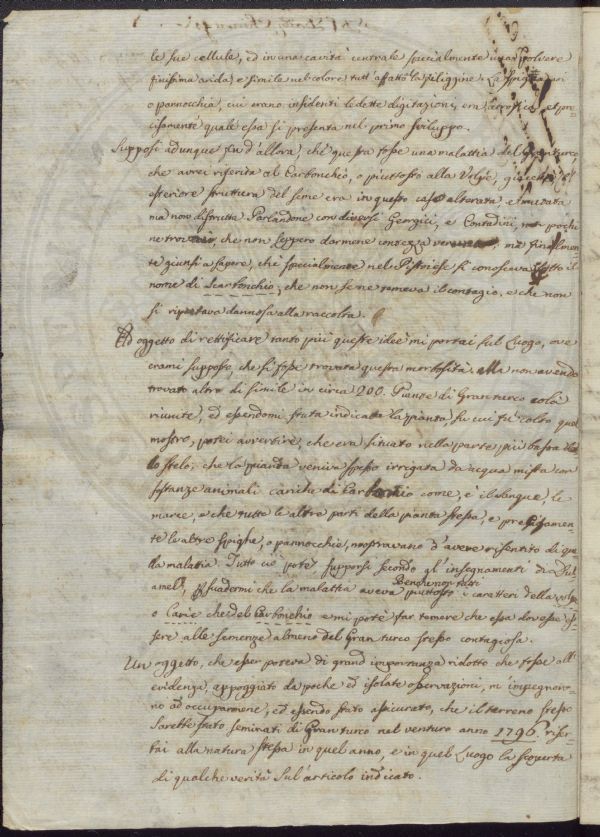 le sue cellule, ed in una cavità centrale specialmente una Polvere
finissima arida, e simile nel colore tutt'affatto la filiggine. La Spiga poi
o pannocchia, cui erano insidenti le dette digitazioni, era et pre-
cisamente quale essa si presenta nel primo sviluppo.
Supposi adunque fin d'allora, che questa fosse una malattia del Granturco,
che avrei riferita al Carbonchio, o piuttosto alla Volpe, giacchè l'
esteriore struttura del seme era in questo caso alterata, e mutata
ma non distrutta. Parlandone con diversi Georgici, e Contadini, non pochi
ne trovai, che non seppero darmene contezza veruna, ma finalmen-
te giunsi a sapere, che specialmente nel Pistoiese si conosceva sotto il
nome di Scarbonchio, che non se ne temeva il contagio, e che non
si riputava dannosa alla raccolta.
Ad oggetto di rettificare tanto più queste idee mi portai sul Luogo, ove
erami supposto, che si fosse trovata questa morbosità. Ma non avendo
trovato altro di simile in circa 900. Piante di Granturco colà
riunite, ed essendomi stata indicata la pianta, su cui fu colto quel
mostro, potei avvertire, che era situato nella parte più bassa del-
lo stelo, che la pianta veniva spesso irrigata da acqua mista con
sostanze animali cariche di Carbonchio come, è il sangue, le
marce, e che tutte le altre parti della pianta stessa, e precisamen-
te le altre spighe, o pannocchie, mostravano d'avere risentito di que-
la malatia. Tutto ciò potè, supporsi secondo gl'insegnamenti di Du-
amel, persuadermi che la malattia aveva piuttosto i caratteri della volpe
o Carie che del Carbonchio e mi potè far temere che essa dovesse es-
sere alle semenze almeno del Gran turco stesso contagiosa.
Un oggetto, che esser poteva di grand'importanza ridotto che fosse all'
evidenza, appoggiato da poche ed isolate osservazioni, m'impegnaro-
no ad occuparmene, ed essendo stato assicurato, che il terreno stesso
sarebbe stato seminato di Granturco nel venturo anno 1796. riser-
bai alla natura stessa in quel anno, e in quel Luogo la scoperta
di qualche verità sul'articolo indicato.